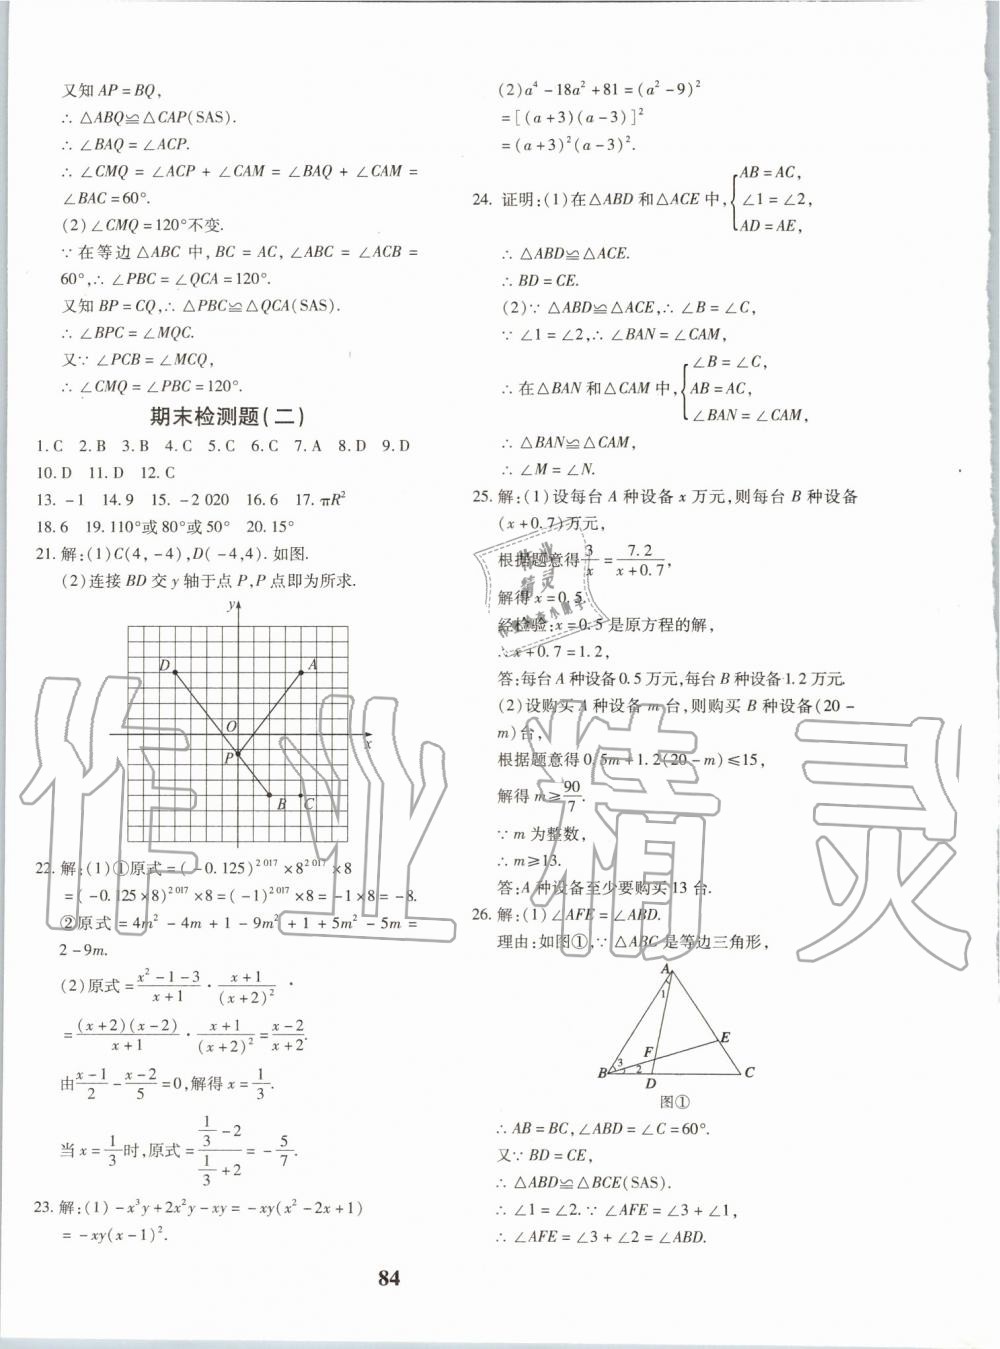 又知 AP=BQ,
∴ △ABQ≌△CAP(SAS).
∴ ∠BAQ=∠ACP.
∴ ∠CMQ=∠ACP+∠CAM=∠BAQ+∠CAM=
∠BAC=60°.
(2)∠CMQ=120°不变.
∵ 在等边△ABC 中,BC=AC,∠ABC=∠ACB=
60°,∴ ∠PBC=∠QCA=120°.
又知 BP=CQ,∴ △PBC≌△QCA(SAS).
∴ ∠BPC=∠MQC.
又∵ ∠PCB=∠MCQ,
∴ ∠CMQ=∠PBC=120°.
期末检测题(二)
1.C 2.B 3.B 4.C 5.C 6.C 7.A 8.D 9.D
10.D 11.D 12.C
13.-1 14.9 15.-2 020 16.6 17.πR²
18.6 19.110°或80°或50° 20.15°
21.解:(1)C(4,-4),D(-4,4).如图.
(2)连接 BD 交 y 轴于点 P,P 点即为所求.
y
D A
O
x
P
B C
22.解:(1)①原式=(-0.125)²⁰¹⁷×8²⁰¹⁷×8
=(-0.125×8)²⁰¹⁷×8=(-1)²⁰¹⁷×8=-1×8=-8.
②原式=4m²-4m+1-9m²+1+5m²-5m=
2-9m.
(2)原式=(x²-1-3)/(x+1)·(x+1)/(x+2)²
=(x+2)(x-2)/(x+1)·(x+1)/(x+2)²=(x-2)/(x+2).
由(x-1)/2-(x-2)/5=0,解得 x=1/3.
当 x=1/3时,原式=(1/3-2)/(1/3+2)=-5/7.
23.解:(1)-x³y+2x²y-xy=-xy(x²-2x+1)
=-xy(x-1)².
(2)a⁴-18a²+81=(a²-9)²
=[(a+3)(a-3)]²
=(a+3)²(a-3)².
24.证明:(1)在△ABD 和△ACE 中,{AB=AC,
∠1=∠2,
AD=AE,
∴ △ABD≌△ACE.
∴ BD=CE.
(2)∵ △ABD≌△ACE,∴ ∠B=∠C,
∵ ∠1=∠2,∴ ∠BAN=∠CAM,
∴ 在△BAN 和△CAM 中,{∠B=∠C,
AB=AC,
∠BAN=∠CAM,
∴ △BAN≌△CAM,
∴ ∠M=∠N.
25.解:(1)设每台 A 种设备 x 万元,则每台 B 种设备
(x+0.7)万元,
根据题意得3/x=7.2/(x+0.7),
解得 x=0.5.
经检验:x=0.5 是原方程的解,
∴ x+0.7=1.2,
答:每台 A 种设备0.5万元,每台 B 种设备1.2万元.
(2)设购买 A 种设备 m 台,则购买 B 种设备(20-
m)台,
根据题意得0.5m+1.2(20-m)≤15,
解得 m≥90/7.
∵ m 为整数,
∴ m≥13.
答:A 种设备至少要购买13台.
26.解:(1)∠AFE=∠ABD.
理由:如图①,∵ △ABC 是等边三角形,
A
1
E
F
3
B 2 D C
图①
∴ AB=BC,∠ABD=∠C=60°.
又∵ BD=CE,
∴ △ABD≌△BCE(SAS).
∴ ∠1=∠2.∵ ∠AFE=∠3+∠1,
∴ ∠AFE=∠3+∠2=∠ABD.
84
作业精灵
作业
精灵